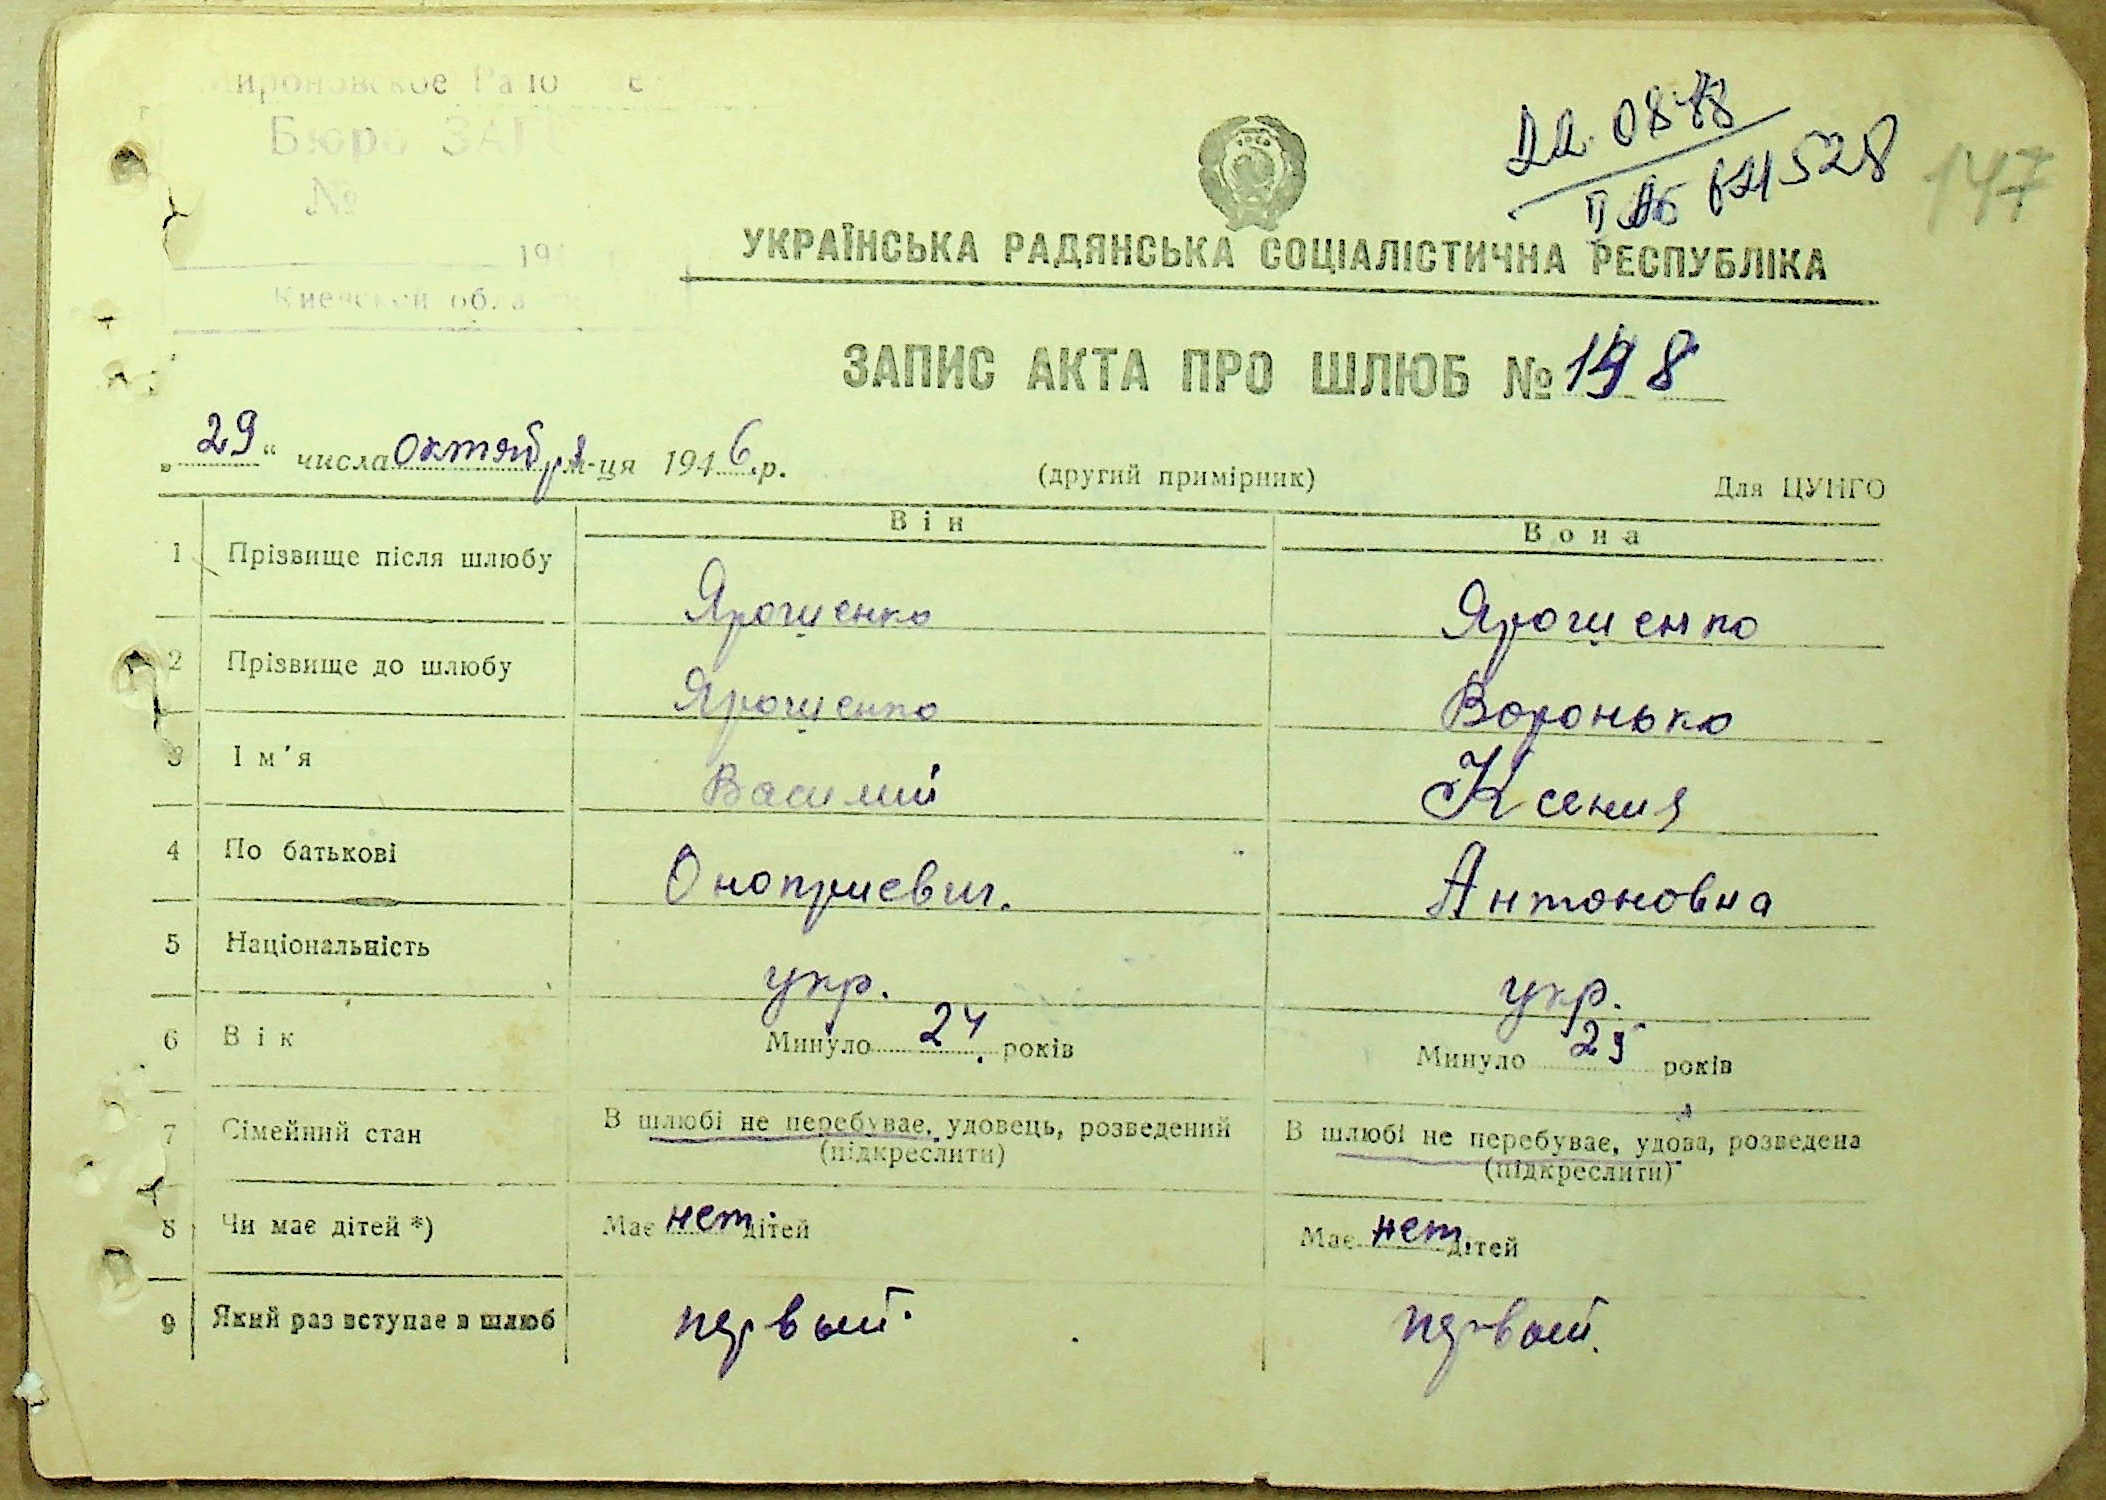 Бюро ЗАГС
№
147
УКРАЇНСЬКА РАДЯНСЬКА СОЦІАЛІСТИЧНА РЕСПУБЛІКА
ЗАПИС АКТА ПРО ШЛЮБ № 198
„29“ числа октября м-ця 1946.р.
(другий примірник)
Для ЦУНГО
Він Вона
1 Прізвище після шлюбу Ярошенко Ярошенко
2 Прізвище до шлюбу Ярошенко Воронько
3 Ім'я Василий Ксения
4 По батькові Оноприевич. Антоновна
5 Національність укр. укр.
6 Вік Минуло 24 років Минуло 25 років
7 Сімейний стан В шлюбі не перебуває, удовець, розведений В шлюбі не перебуває, удова, розведена
(підкреслити) (підкреслити)
8 Чи має дітей *) Має нет. дітей Має нет. дітей
9 Який раз вступає в шлюб первый. первый.